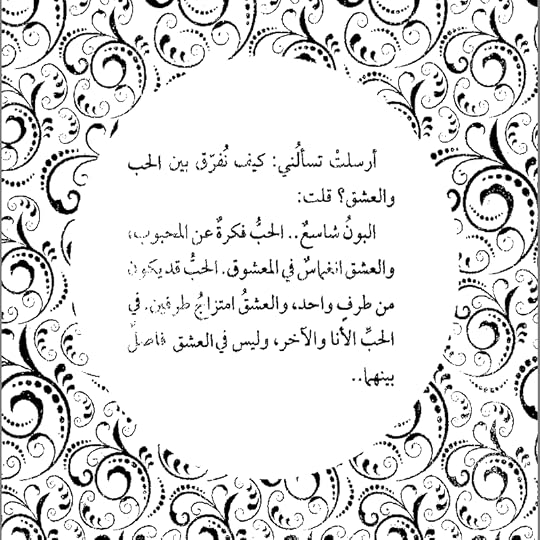 أرسلتْ تسألُني: كيف نُفرّق بين الحب
والعشق؟ قلت:
البونُ شاسعٌ.. الحبُّ فكرةٌ عن المحبوب،
والعشق انغماسٌ في المعشوق. الحبُّ قد يكون
من طرفٍ واحد، والعشقُ امتزاجُ طرفين. في
الحبِّ الأنا والآخر، وليس في العشق فاصلٌ
بينهما..